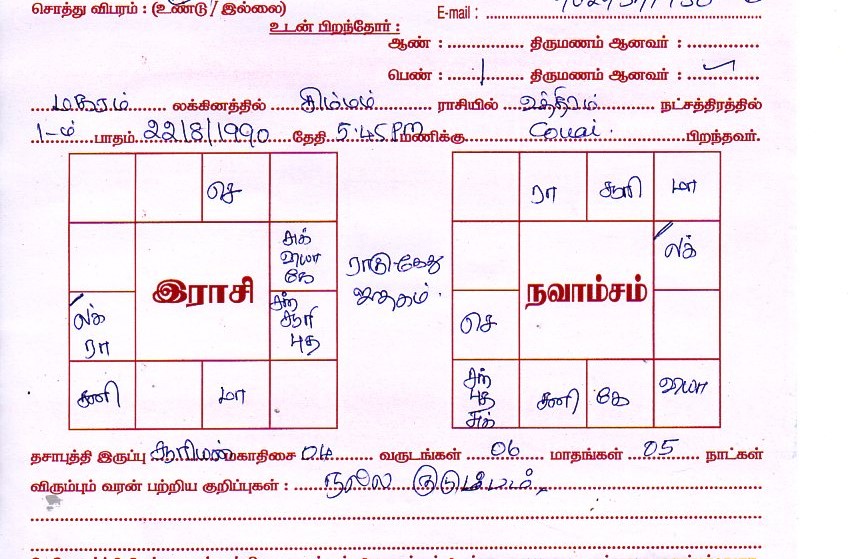 சொத்து விபரம் : (உண்டு / இல்லை)
E-mail :
உடன் பிறந்தோர் :
ஆண் : திருமணம் ஆனவர் :
பெண் : 1 திருமணம் ஆனவர் : ✓
மகரம் லக்கினத்தில் சிம்மம் ராசியில் உத்திரம் நட்சத்திரத்தில்
1-ம் பாதம் 22/8/1990 தேதி 5.45 PM மணிக்கு Covai. பிறந்தவர்.
செ
சுக்
குரு
கே
இராசி
லக்
ரா
சந்
சூரி
புத
சனி மா
ராகு கேது
ஜாதகம்.
ரா சூரி மா
லக்
நவாம்சம்
செ
சந்
புத
சுக்
சனி கே குரு
தசாபுத்தி இருப்பு சூரியன் மகாதிசை 04 வருடங்கள் 06 மாதங்கள் 05 நாட்கள்
விரும்பும் வரன் பற்றிய குறிப்புகள் : நல்ல குடும்பம்,